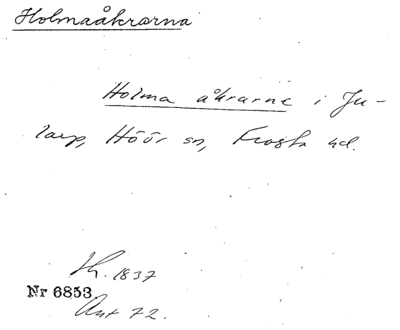 Holmaåkrarna
Holma åkrarne i Ju-
larp, Höör sn, Frosta hd.
Sk. 1837
Nr 6853
Ant 72.